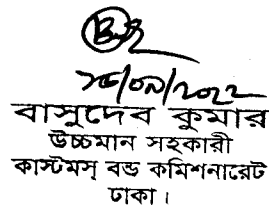 ২৮/০৯/২০২২
বাসুদেব কুমার
উচ্চমান সহকারী
কাস্টমস্ বন্ড কমিশনারেট
ঢাকা।